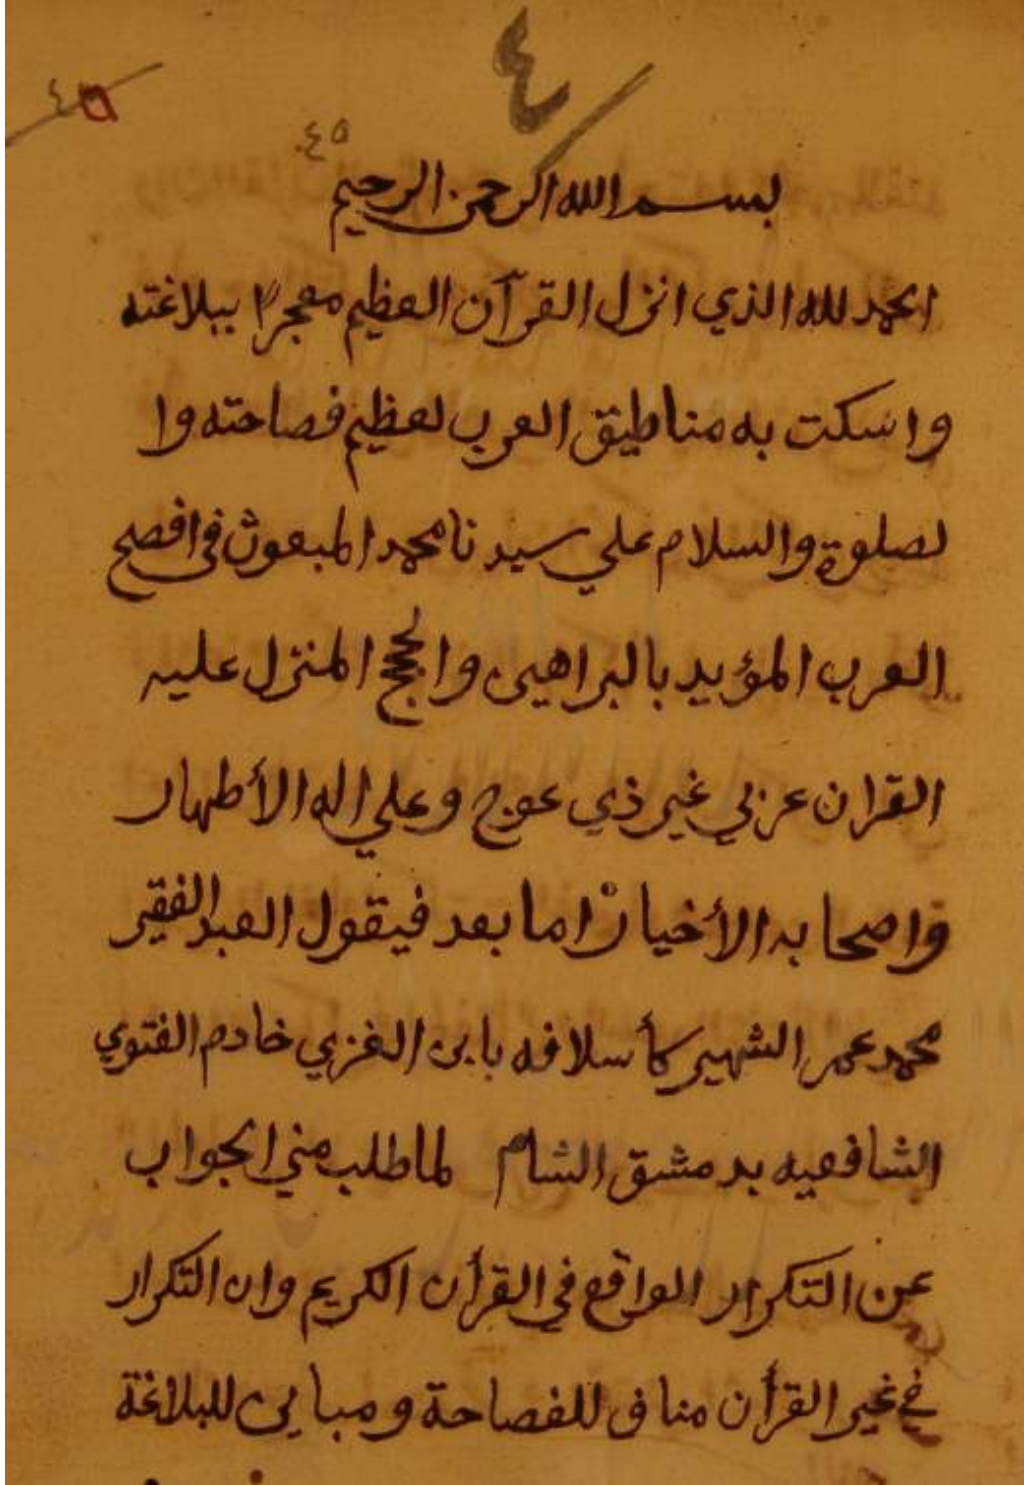 ٤
٤٥
بسم الله الرحمن الرحيم
الحمد لله الذي انزل القرآن العظيم معجزا ببلاغته
واسكت به مناطيق العرب لعظيم فصاحته وا
لصلوة والسلام علي سيدنا محمد المبعوث في افصح
العرب المؤيد بالبراهين والحجج المنزل عليه
القران عربي غير ذي عوج وعلي اله الأطهار
واصحابه الأخيار اما بعد فيقول العبد الفقير
محمد عمر الشهير كأسلافه بابن الغزي خادم الفتوي
الشافعيه بدمشق الشام لما طلب مني الجواب
عن التكرار الواقع في القرأن الكريم وان التكرار
في غير القرأن مناف للفصاحة ومباين للبلاغة